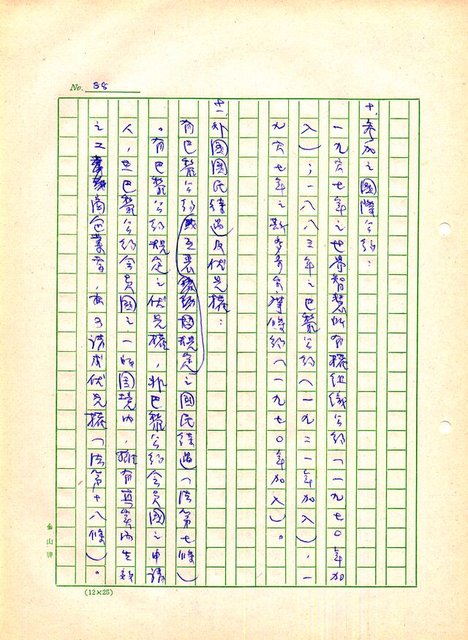 No. 38
十、參加之國際公約：
一九六七年之世界智慧所有權組織公約（一九七〇年加
入）；一八八三年之巴黎公約（一九二一年加入），一
九六七年之斯多哥（一九七〇年加入）。
十一、外國國民待遇及优先權：
有巴黎公約或互惠規定之國民待遇（法第七條）
。有巴黎公約規定之优先權，非巴黎公約會員國之申請
人，在巴黎公約會員國之一的國境內，擁有真實而生效
之工商企業者，亦可請求优先權（法第十八條）。
金山牌
(12×25)